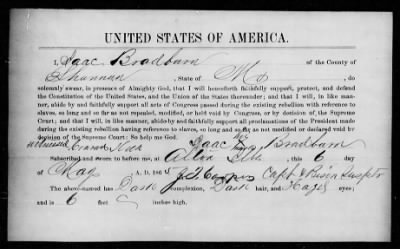 UNITED STATES OF AMERICA.
I, Isaac Bradburn of the County of
Shannon, State of Mo, do
solemnly swear, in presence of Almighty God, that I will henceforth faithfully support, protect, and defend
the Constitution of the United States, and the Union of the States thereunder; and that I will, in like man-
ner, abide by and faithfully support all acts of Congress passed during the existing rebellion with reference to
slaves, so long and so far as not repealed, modified, or held void by Congress, or by decision of the Supreme
Court; and that I will, in like manner, abide by and faithfully support all proclamations of the President made
during the existing rebellion having reference to slaves, so long and so far as not modified or declared void by
decision of the Supreme Court: So help me God.
Witnessed his
Isaac Bradburn
Subscribed and sworn to before me, at, this 6 day
of May A. D. 186
The above-named has Dark complexion, Dark hair, and Hazel eyes;
and is 6 feet inches high.